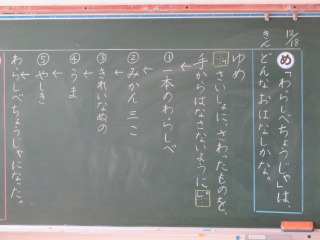 12/18
きん
め 「わらしべちょうじゃ」は、
どんなおはなしかな。
ゆめ
「さいしょに、さわったものを、
手からはなさないように。」
↓
① 一本のわらしべ
↓
② みかん 三こ
↓
③ きれいなぬの
↓
④ うま
↓
⑤ やしき
↓
わらしべちょうじゃになった。